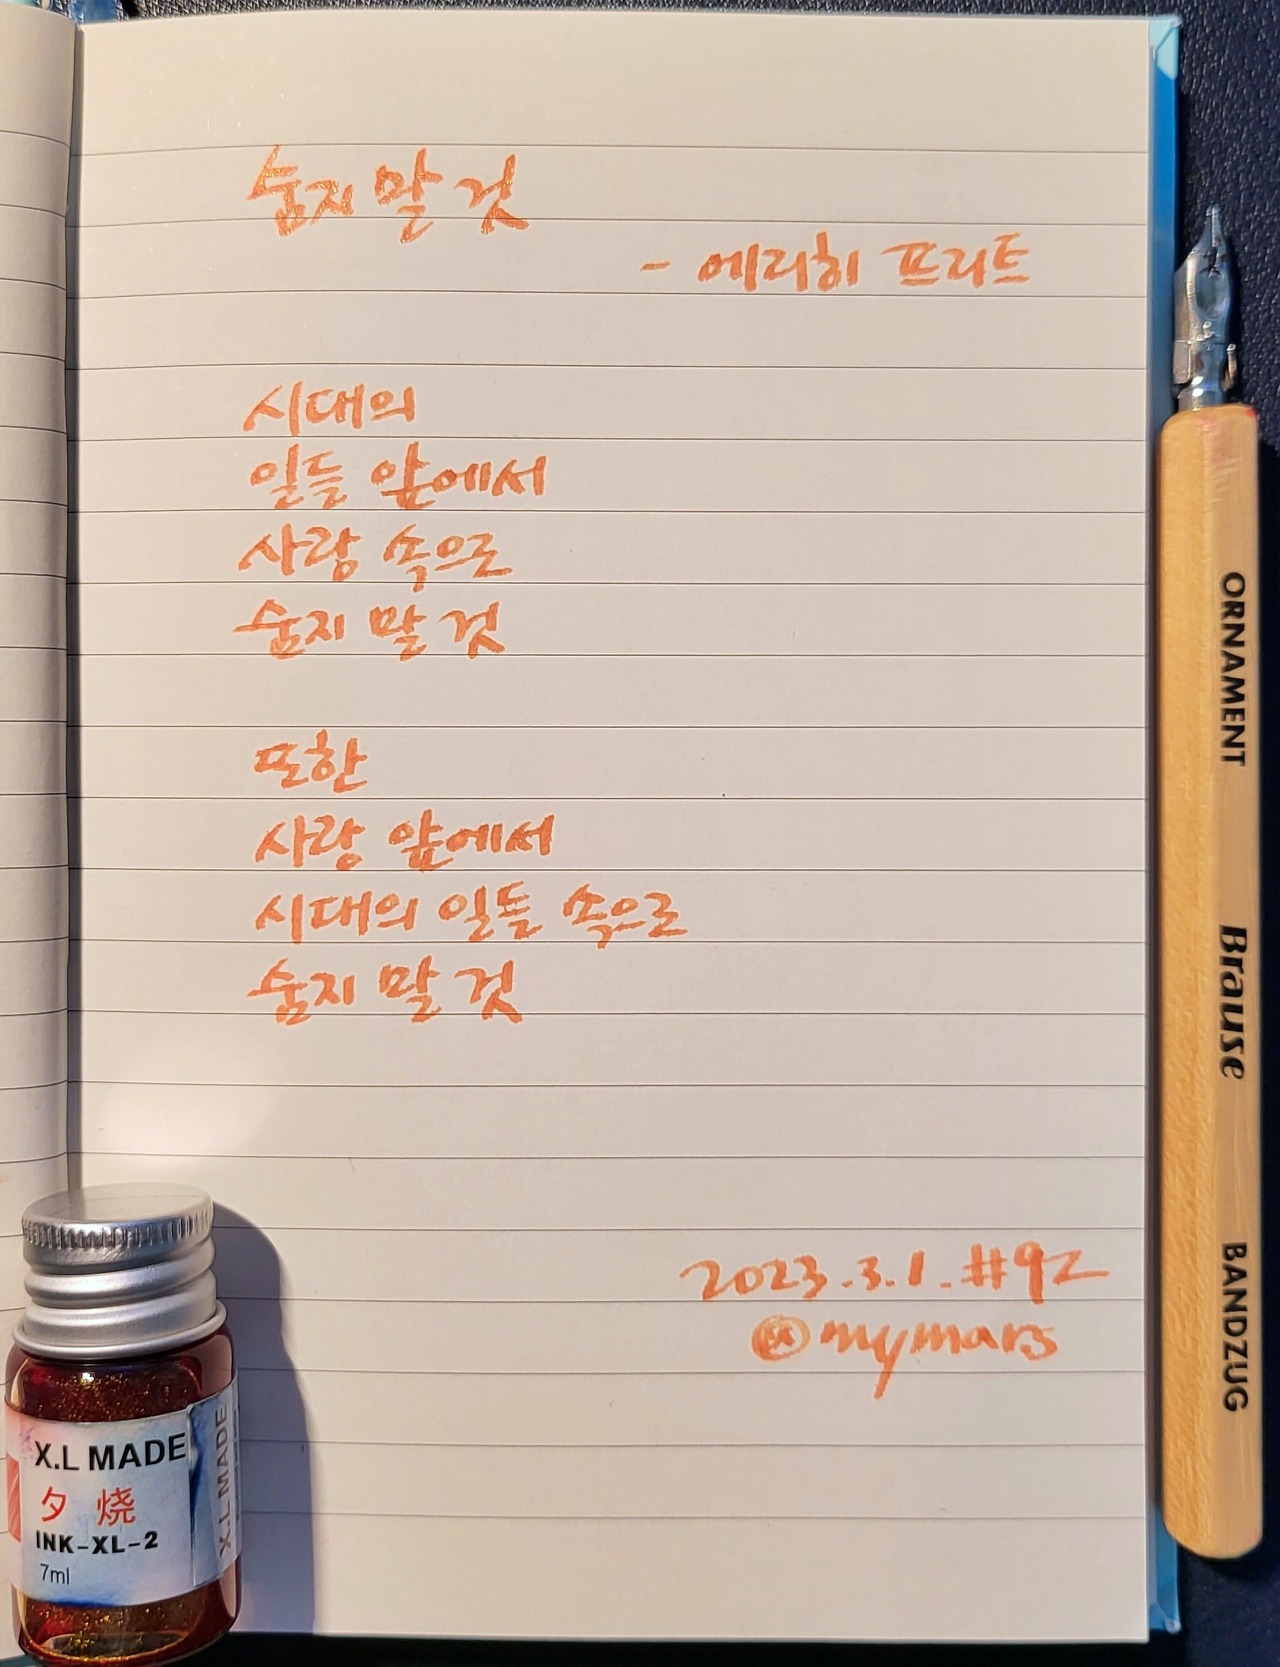 숨지 말 것
- 에리히 프리트
시대의
일들 앞에서
사랑 속으로
숨지 말 것
또한
사랑 앞에서
시대의 일들 속으로
숨지 말 것
2023.3.1.#92
@mymars
X.L MADE
夕 烧
INK-XL-2
7ml
X.L MADE
ORNAMENT
Brause
BANDZUG